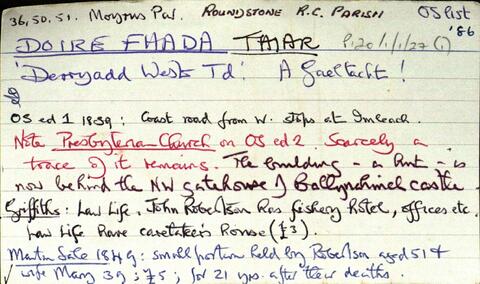 36, 50, 51. Moyrus Par. ROUNDSTONE R.C. PARISH OS list '86
DOIRE FHADA THIAR P120/1/1/27 (1)
'Derryadd West Td.' A Gaeltacht!
OS ed 1 1839: Coast road from W. stops at Imleach.
Note Presbyterian Church on OS ed 2. Scarcely a
trace of it remains. The building - a hut - is
now behind the NW gatehouse of Ballynahinch castle
Griffiths: Law Life. John Robertson has fishery hotel, offices etc.
Law Life have caretaker's house (£3).
Martin Sale 1849: small portion held by Robertson aged 51 &
wife Mary 39; £5; for 21 yrs. after their deaths.